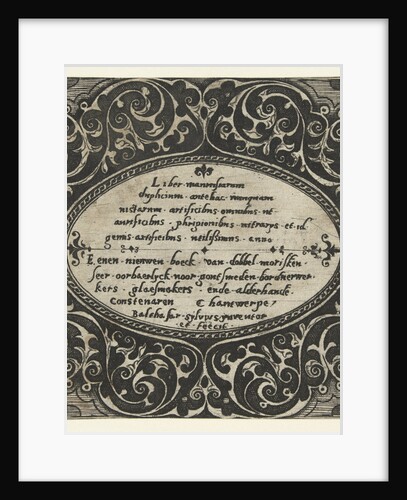 Liber mauresiarum
duplicium · antehac nunquam
nistarum · artificibus omnibus ut
aurificibus · phrigionibus vitrarys et id
genus artificibus · utilissimus · anno
Eenen nieuwen boeck van dobbel morisken
seer oorbaerlyck voor goutsmeden bordurwer ·
kers · glaesmakers · ende alderhande ·
Constenaren Thantwerpe
Balthasar · sylvius · inventor
et fecit